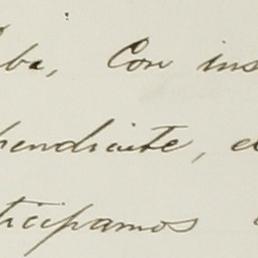 ba, Con ins
pendicite, e
ticipamos